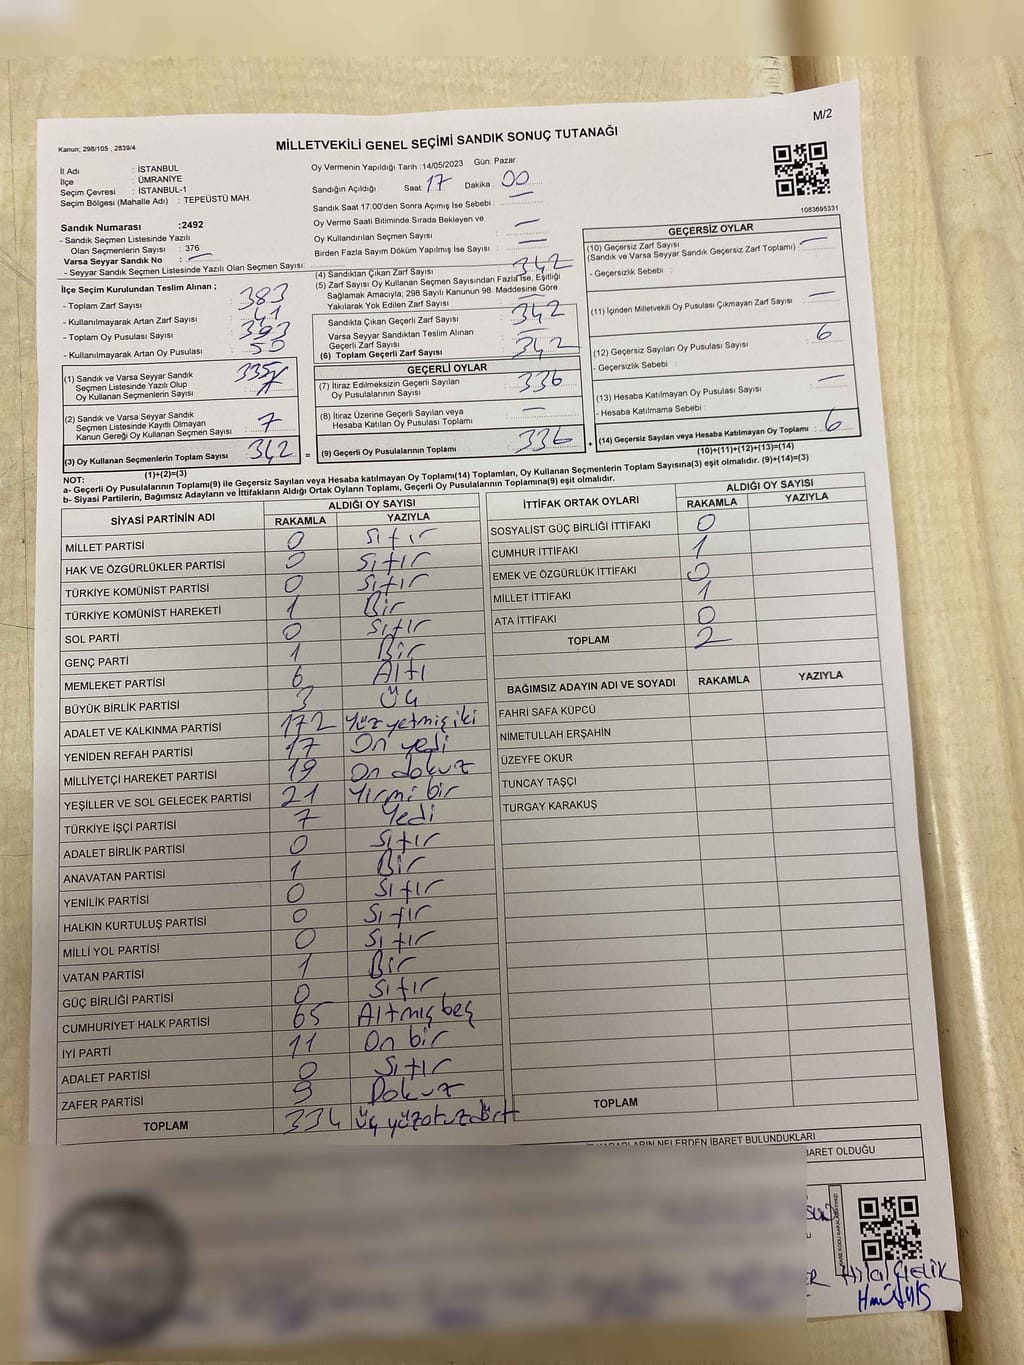 M/2
Kanun; 298/105 , 2839/4
MİLLETVEKİLİ GENEL SEÇİMİ SANDIK SONUÇ TUTANAĞI
İl Adı : İSTANBUL
İlçe : ÜMRANİYE
Seçim Çevresi : İSTANBUL-1
Seçim Bölgesi (Mahalle Adı) : TEPEÜSTÜ MAH.
Oy Vermenin Yapıldığı Tarih :14/05/2023 Gün: Pazar
Sandığın Açıldığı Saat : 17 Dakika : 00
Sandık Saat 17:00'den Sonra Açımış İse Sebebi :
Oy Verme Saati Bitiminde Sırada Bekleyen ve
Oy Kullandırılan Seçmen Sayısı : —
Birden Fazla Sayım Döküm Yapılmış İse Sayısı : —
1083695331
Sandık Numarası :2492
- Sandık Seçmen Listesinde Yazılı
Olan Seçmenlerin Sayısı : 376
Varsa Seyyar Sandık No : —
- Seyyar Sandık Seçmen Listesinde Yazılı Olan Seçmen Sayısı:
İlçe Seçim Kurulundan Teslim Alınan ;
- Toplam Zarf Sayısı : 383
- Kullanılmayarak Artan Zarf Sayısı : 41
- Toplam Oy Pusulası Sayısı : 393
- Kullanılmayarak Artan Oy Pusulası : 50
(1) Sandık ve Varsa Seyyar Sandık
Seçmen Listesinde Yazılı Olup
Oy Kullanan Seçmenlerin Sayısı : 335
(2) Sandık ve Varsa Seyyar Sandık
Seçmen Listesinde Kayıtlı Olmayan
Kanun Gereği Oy Kullanan Seçmen Sayısı : 7
(3) Oy Kullanan Seçmenlerin Toplam Sayısı : 342
(1)+(2)=(3)
(4) Sandıktan Çıkan Zarf Sayısı : 342
(5) Zarf Sayısı Oy Kullanan Seçmen Sayısından Fazla İse, Eşitliği
Sağlamak Amacıyla; 298 Sayılı Kanunun 98. Maddesine Göre
Yakılarak Yok Edilen Zarf Sayısı :
Sandıkta Çıkan Geçerli Zarf Sayısı : 342
Varsa Seyyar Sandıktan Teslim Alınan
Geçerli Zarf Sayısı : —
(6) Toplam Geçerli Zarf Sayısı : 342
GEÇERLİ OYLAR
(7) İtiraz Edilmeksizin Geçerli Sayılan
Oy Pusulalarının Sayısı : 336
(8) İtiraz Üzerine Geçerli Sayılan veya
Hesaba Katılan Oy Pusulası Toplamı : —
(9) Geçerli Oy Pusulalarının Toplamı : 336
GEÇERSİZ OYLAR
(10) Geçersiz Zarf Sayısı
(Sandık ve Varsa Seyyar Sandık Geçersiz Zarf Toplamı) : —
- Geçersizlik Sebebi :
(11) İçinden Milletvekili Oy Pusulası Çıkmayan Zarf Sayısı : —
(12) Geçersiz Sayılan Oy Pusulası Sayısı : 6
- Geçersizlik Sebebi :
(13) Hesaba Katılmayan Oy Pusulası Sayısı : —
- Hesaba Katılmama Sebebi :
(14) Geçersiz Sayılan veya Hesaba Katılmayan Oy Toplamı : 6
(10)+(11)+(12)+(13)=(14)
NOT:
a- Geçerli Oy Pusulalarının Toplamı(9) ile Geçersiz Sayılan veya Hesaba katılmayan Oy Toplamı(14) Toplamları, Oy Kullanan Seçmenlerin Toplam Sayısına(3) eşit olmalıdır. (9)+(14)=(3)
b- Siyasi Partilerin, Bağımsız Adayların ve İttifakların Aldığı Ortak Oyların Toplamı, Geçerli Oy Pusulalarının Toplamına(9) eşit olmalıdır.
SİYASİ PARTİNİN ADI ALDIĞI OY SAYISI
RAKAMLA YAZIYLA
MİLLET PARTİSİ 0 Sıfır
HAK VE ÖZGÜRLÜKLER PARTİSİ 0 Sıfır
TÜRKİYE KOMÜNİST PARTİSİ 0 Sıfır
TÜRKİYE KOMÜNİST HAREKETİ 1 Bir
SOL PARTİ 0 Sıfır
GENÇ PARTİ 1 Bir
MEMLEKET PARTİSİ 6 Altı
BÜYÜK BİRLİK PARTİSİ 3 Üç
ADALET VE KALKINMA PARTİSİ 172 Yüz yetmiş iki
YENİDEN REFAH PARTİSİ 17 On yedi
MİLLİYETÇİ HAREKET PARTİSİ 19 On dokuz
YEŞİLLER VE SOL GELECEK PARTİSİ 21 Yirmi bir
TÜRKİYE İŞÇİ PARTİSİ 7 Yedi
ADALET BİRLİK PARTİSİ 0 Sıfır
ANAVATAN PARTİSİ 1 Bir
YENİLİK PARTİSİ 0 Sıfır
HALKIN KURTULUŞ PARTİSİ 0 Sıfır
MİLLİ YOL PARTİSİ 0 Sıfır
VATAN PARTİSİ 1 Bir
GÜÇ BİRLİĞİ PARTİSİ 0 Sıfır
CUMHURİYET HALK PARTİSİ 65 Altmış beş
İYİ PARTİ 11 On bir
ADALET PARTİSİ 0 Sıfır
ZAFER PARTİSİ 9 Dokuz
TOPLAM 334 üç yüz otuz dört
İTTİFAK ORTAK OYLARI ALDIĞI OY SAYISI
RAKAMLA YAZIYLA
SOSYALİST GÜÇ BİRLİĞİ İTTİFAKI 0
CUMHUR İTTİFAKI 1
EMEK VE ÖZGÜRLÜK İTTİFAKI 0
MİLLET İTTİFAKI 1
ATA İTTİFAKI 0
TOPLAM 2
BAĞIMSIZ ADAYIN ADI VE SOYADI RAKAMLA YAZIYLA
FAHRİ SAFA KÜPCÜ
NİMETULLAH ERŞAHİN
ÜZEYFE OKUR
TUNCAY TAŞÇI
TURGAY KARAKUŞ
TOPLAM
KARARLARIN NELERDEN İBARET BULUNDUKLARI
İBARET OLDUĞU
Hilal Çelik